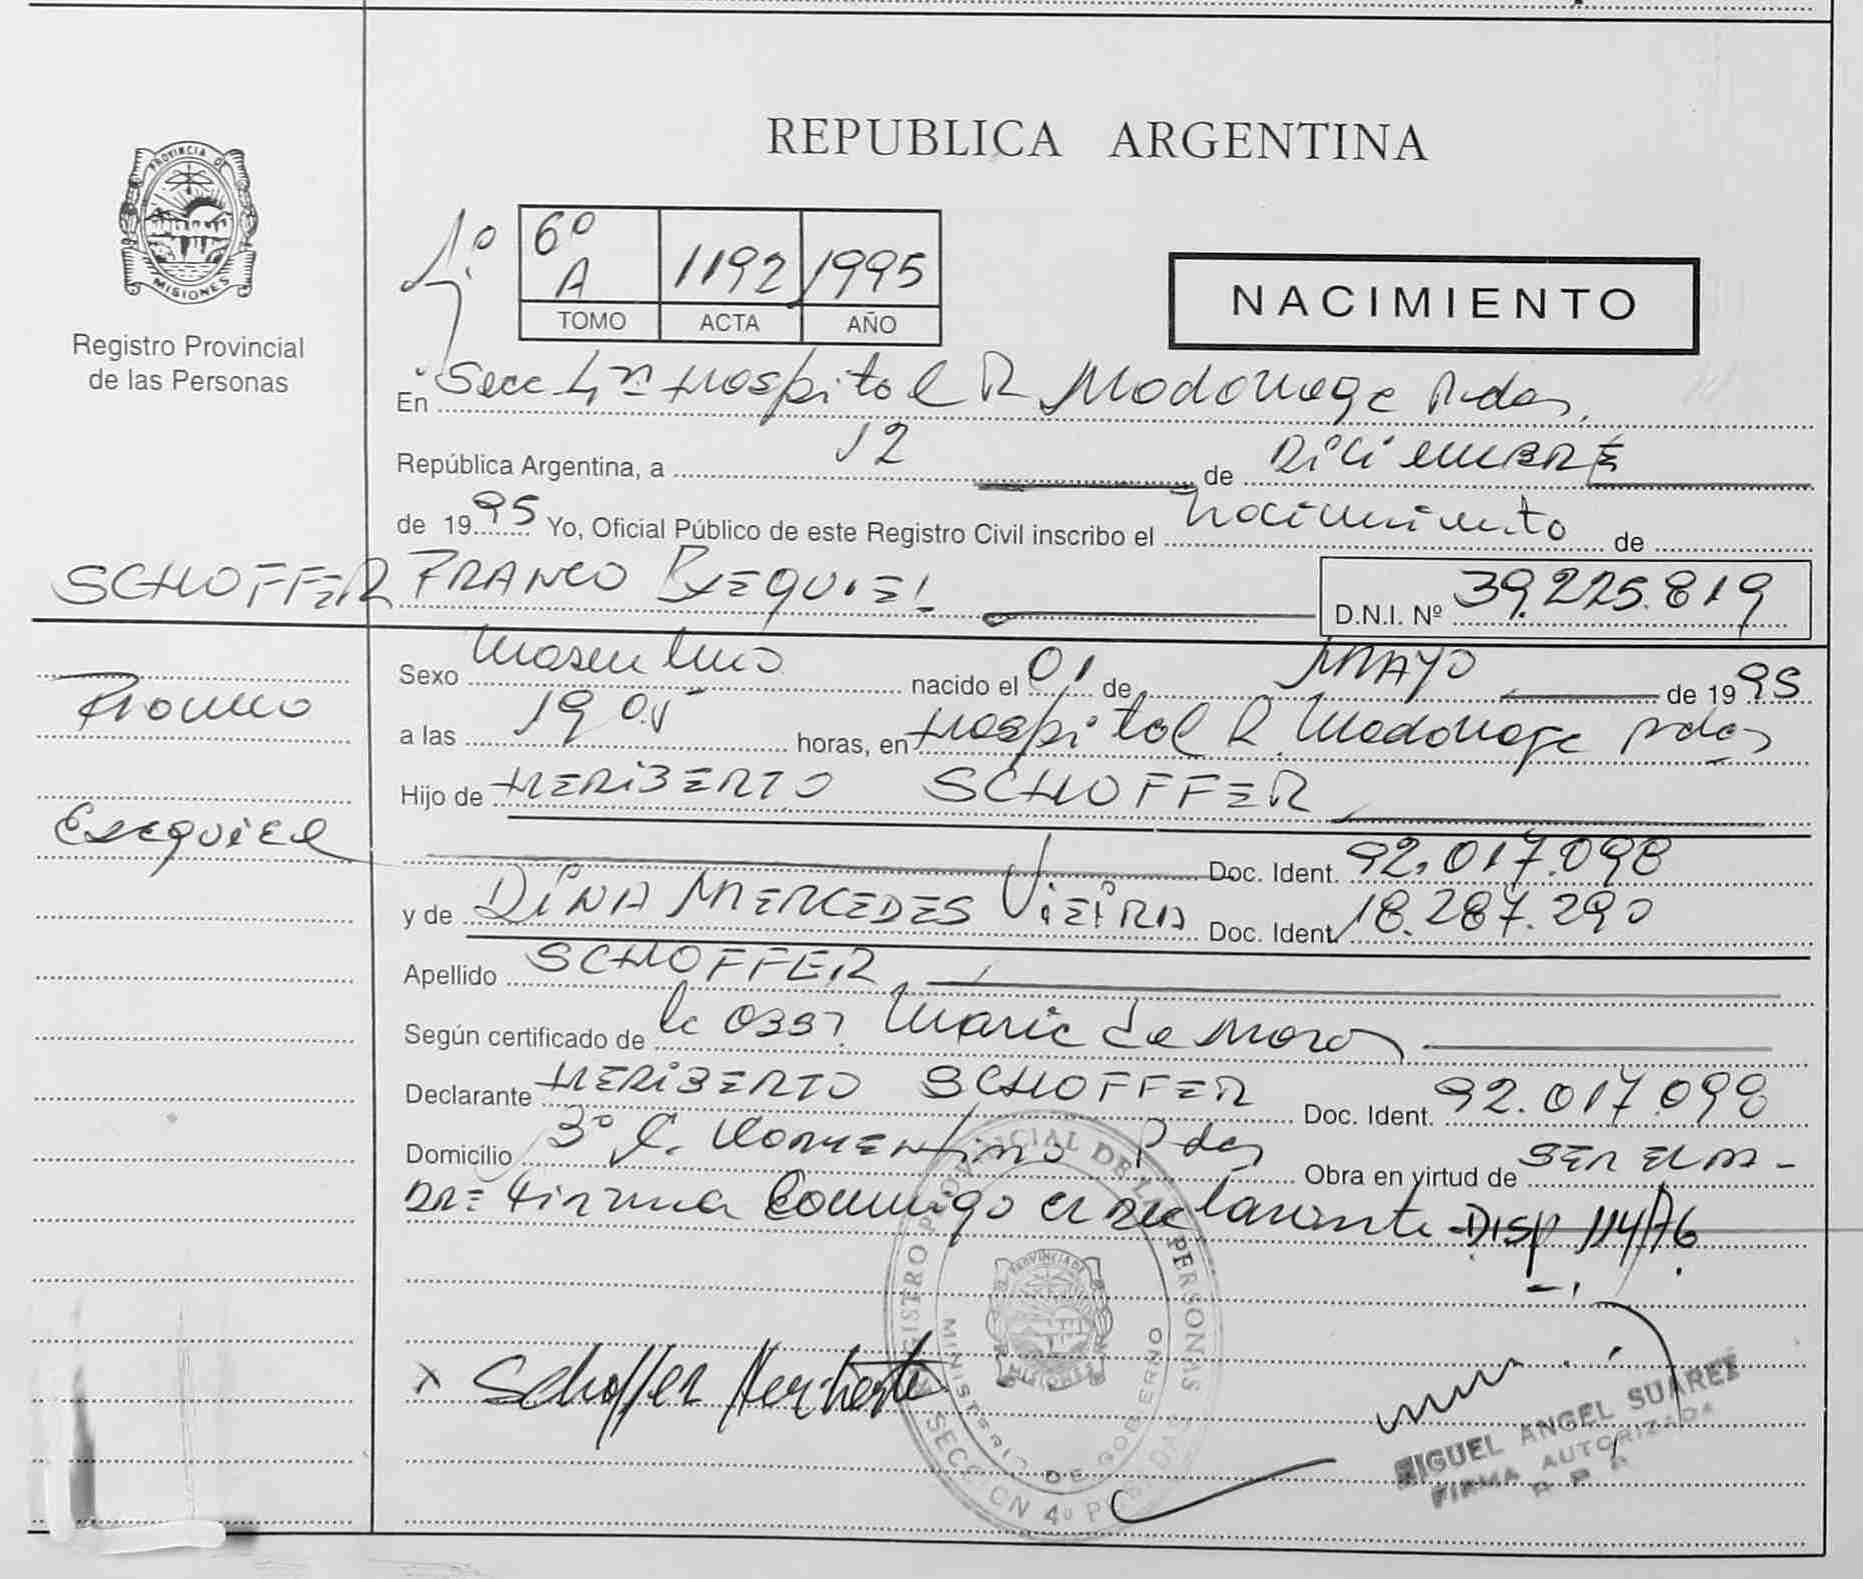 REPUBLICA ARGENTINA
PROVINCIA DE
MISIONES
Registro Provincial
de las Personas
6º
A 1192 1995
TOMO ACTA AÑO
NACIMIENTO
En Secc 4ª Hospital R Madariaga Pdas.
República Argentina, a 12 de DICIEMBRE
de 1995 Yo, Oficial Público de este Registro Civil inscribo el nacimiento de
SCHOFFER FRANCO EXEQUIEL D.N.I. Nº 39.225.819
Franco
Exequiel
Sexo Masculino nacido el 01 de MAYO de 1995
a las 19 05 horas, en Hospital R. Madariaga Pdas
Hijo de HERIBERTO SCHOFFER
Doc. Ident. 92.017.098
y de DINA MERCEDES VIEIRA Doc. Ident. 18.287.290
Apellido SCHOFFER
Según certificado de la Obst. Maria de Mora
Declarante HERIBERTO SCHOFFER Doc. Ident. 92.017.098
Domicilio 3º C. Pdas Obra en virtud de SER EL PA-
DRE firma conmigo el declarante DISP 114/76
REGISTRO PROVINCIAL DE LAS PERSONAS
MINISTERIO DE GOBIERNO
SECCION 4º POSADAS
x Schoffer Heriberto
MIGUEL ANGEL SUAREZ
FIRMA AUTORIZADA